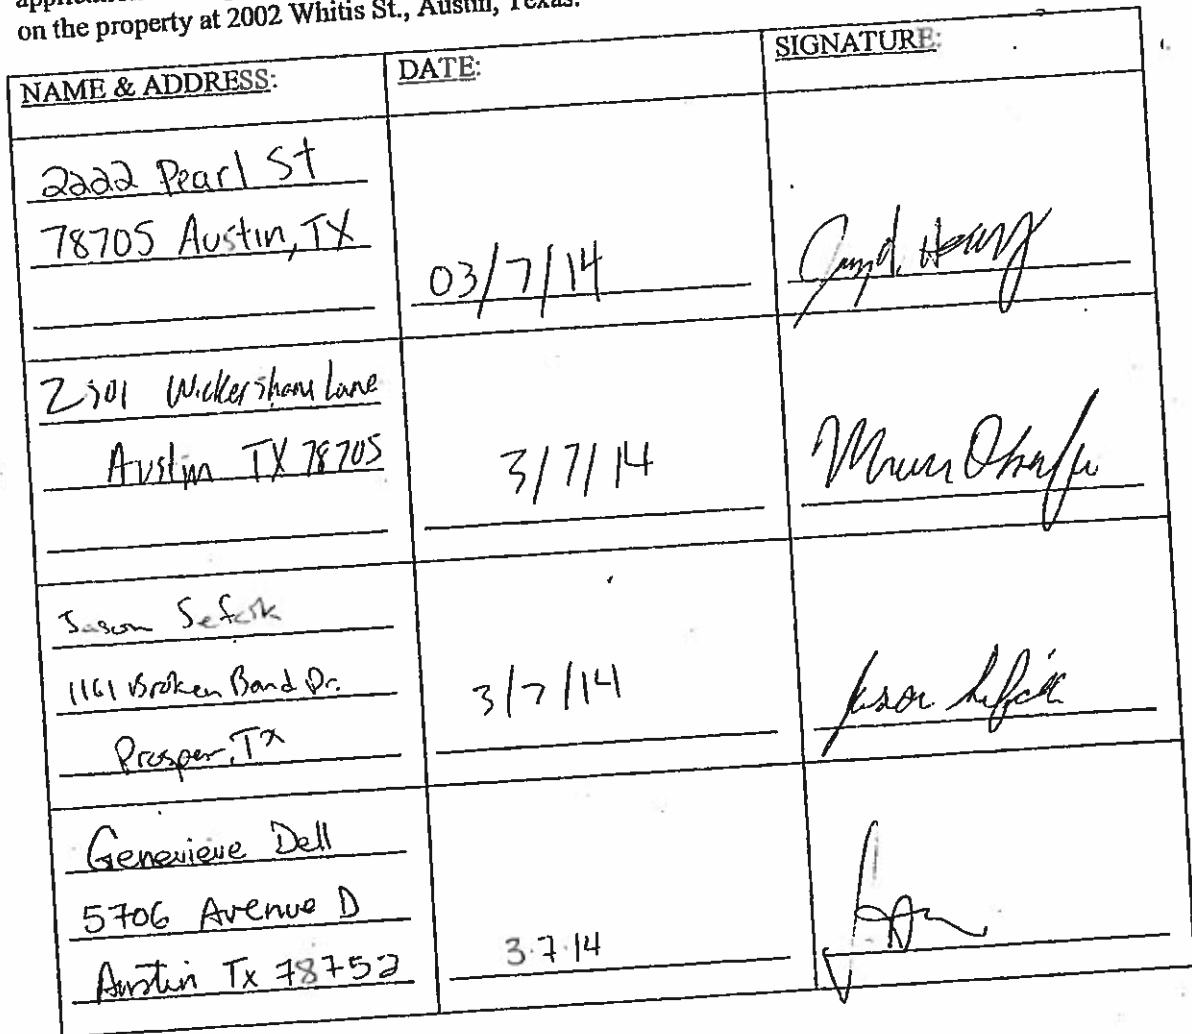 on the property at 2002 Whitis St., Austin, Texas.
NAME & ADDRESS:
DATE:
SIGNATURE:
2222 Pearl St
78705 Austin, TX
03/7/14
Wickersham Lane
Austin TX 78705
3/7/14
Jason Sefcik
1161 Broken Band Dr.
Prosper, Tx
3/7/14
Jason Sefcik
Genevieve Dell
5706 Avenue D
Austin Tx 78752
3.7.14